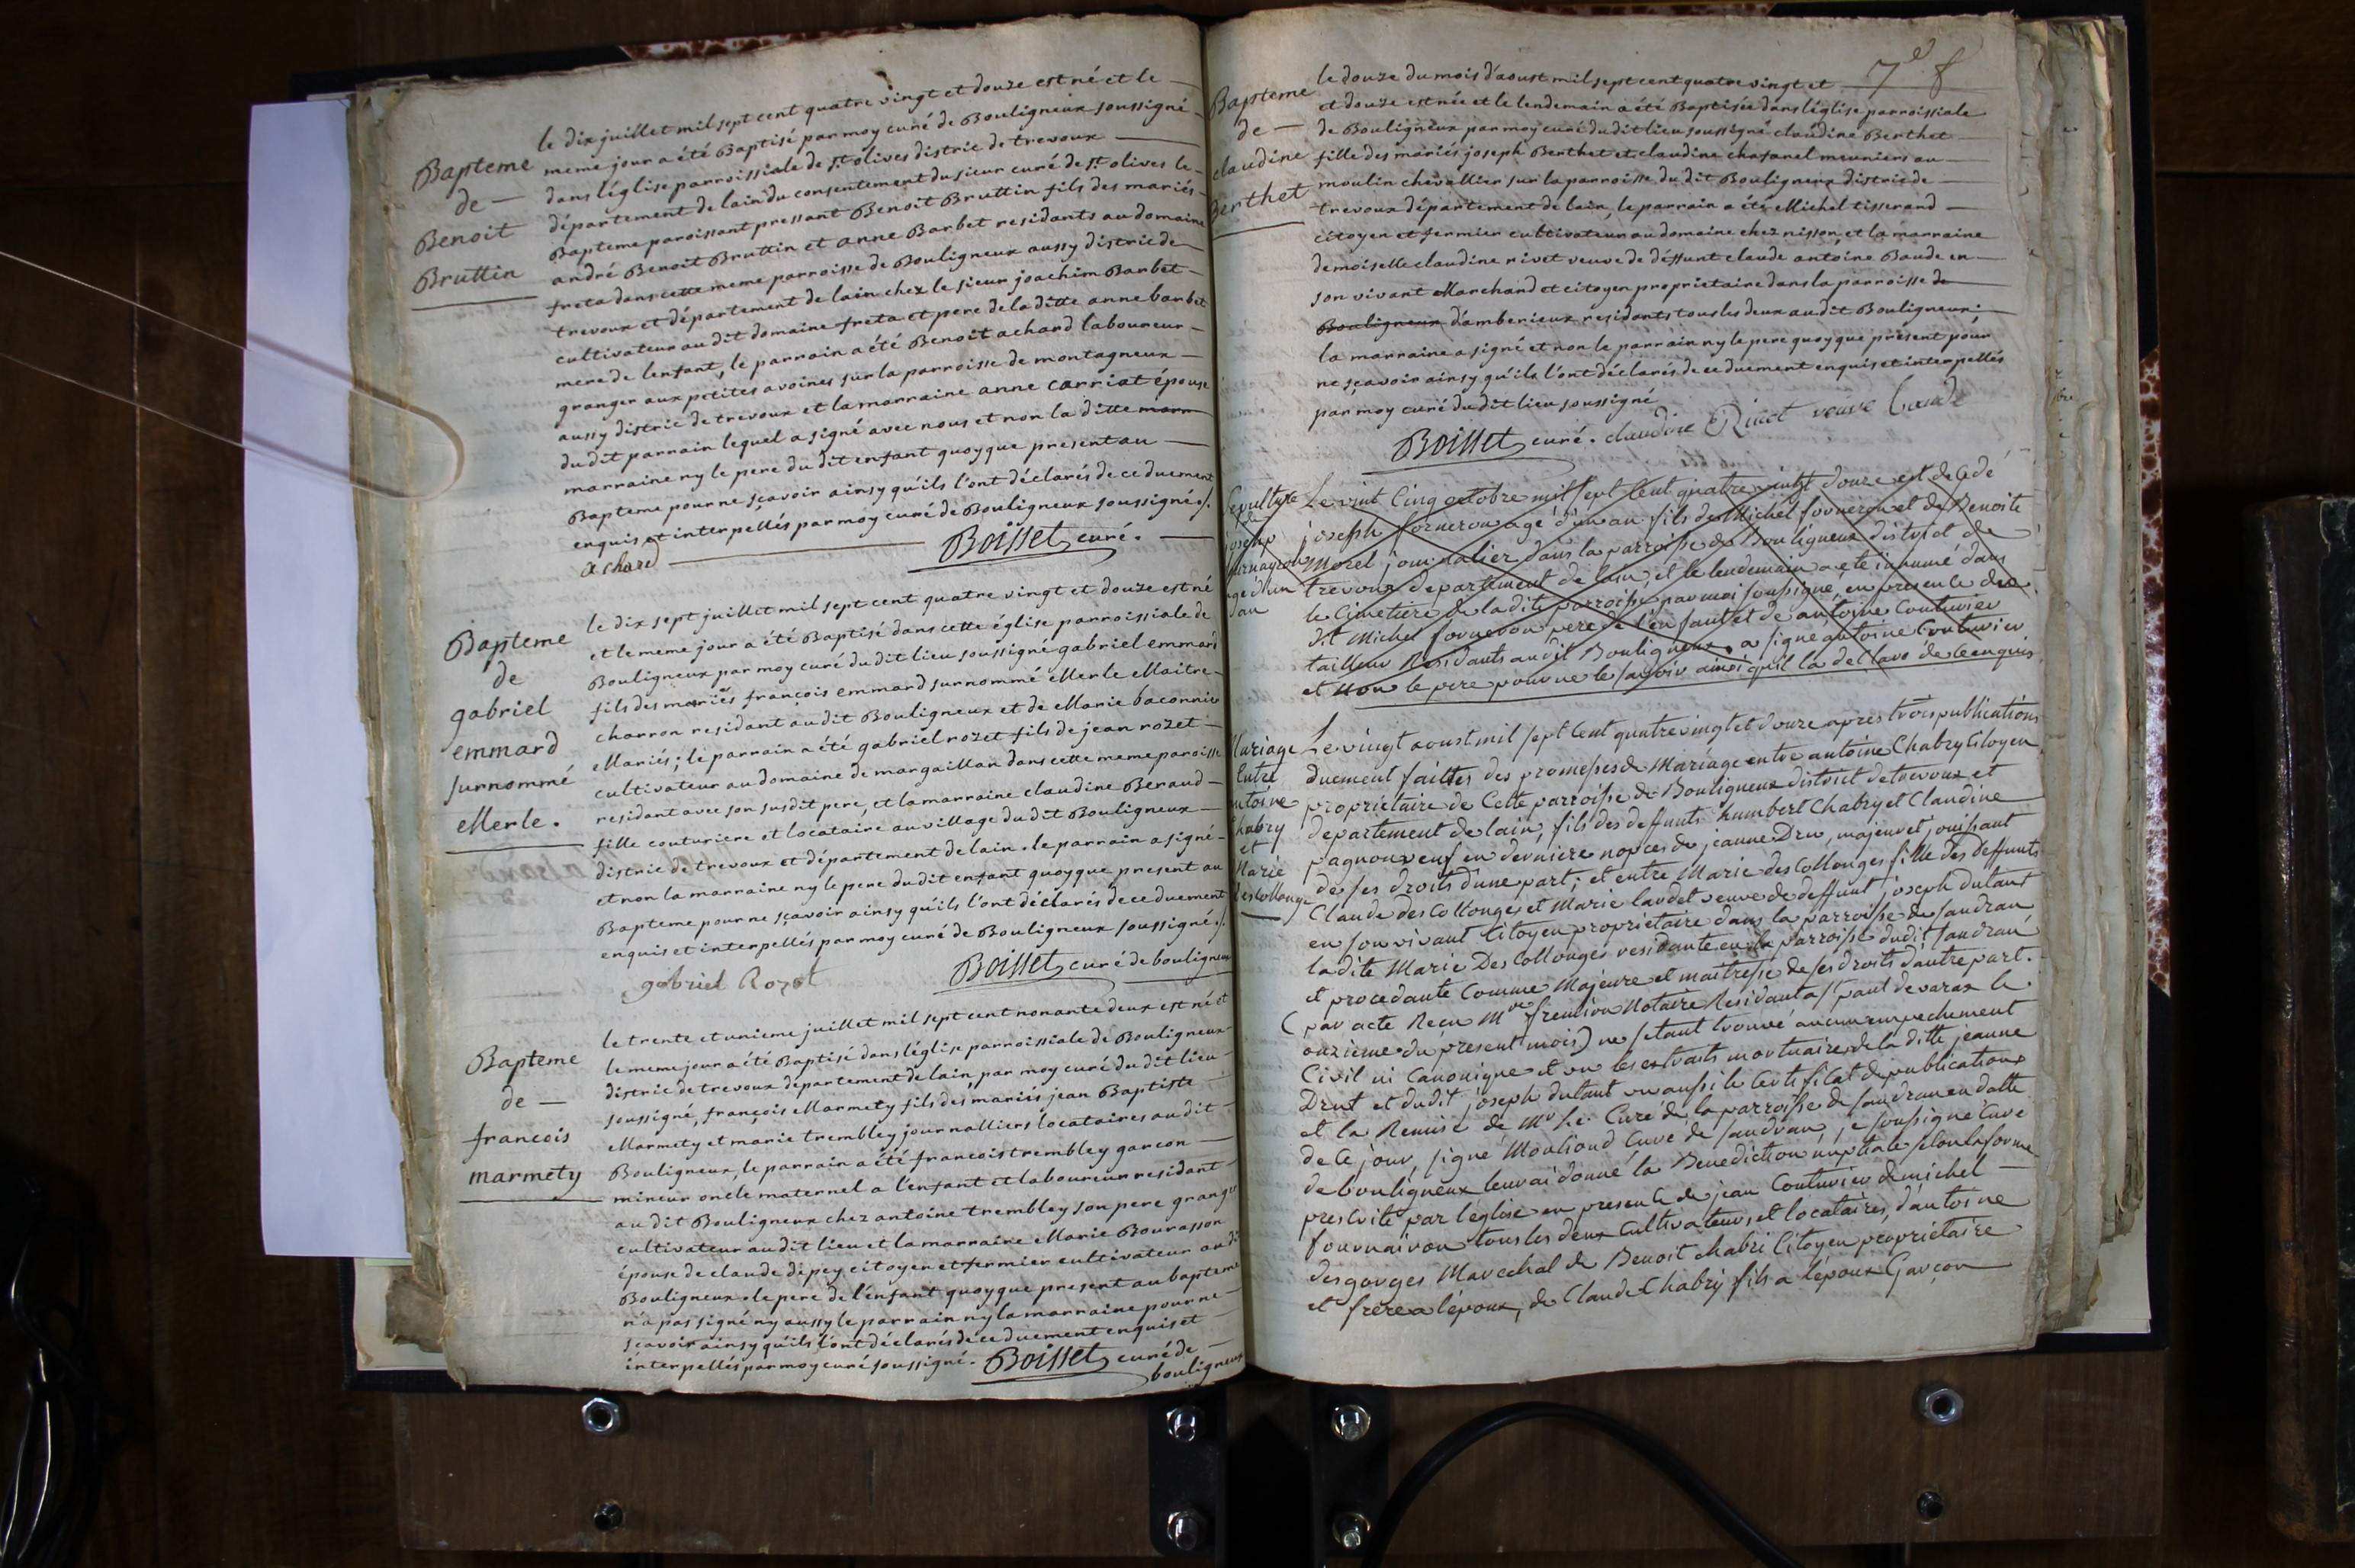 Bapteme
de —
Benoit
Bruttin
le dix juillet mil sept cent quatre vingt et douze est né et le —
meme jour a été Baptisé par moy curé de Bouligneux soussigné —
dans l'église parroissiale de st olives distric de trevoux —
département de lain du consentement du sieur curé de st olives le —
Bapteme paroissant pressant Benoit Bruttin fils des mariés —
andré Benoit Bruttin et anne Barbet residants au domaine
freta dans cette meme parroisse de Bouligneux aussy distric de —
trevoux et département de lain chez le sieur joachim Barbet —
cultivateur au dit domaine freta et pere de la ditte anne barbet
mere de lenfant, le parrain a été Benoit achard laboureur —
granger aux petites avoines sur la parroisse de montagneux —
aussy distric de trevoux et la marraine anne carriat épouse
du dit parrain lequel a signé avec nous et non la ditte marr
marraine ny le pere du dit enfant quoyque present au —
Bapteme pour ne sçavoir ainsy qu'ils l'ont déclarés de ce duement
enquis et interpellés par moy curé de Bouligneux soussigné ./.
achard — Boisset curé. —
Bapteme
de
gabriel
emmard
surnommé
Merle.
le dix sept juillet mil sept cent quatre vingt et douze est né
et le meme jour a été Baptisé dans cette église parroissiale de
Bouligneux par moy curé du dit lieu soussigné gabriel emmard
fils des mariés françois emmard surnommé Merle Maitre —
charron residant au dit Bouligneux et de Marie baconnier
Mariés; le parrain a été gabriel rozet fils de jean rozet —
cultivateur au domaine de margaillan dans cette meme paroisse
residant avec son susdit pere, et la marraine claudine Beraud —
fille couturiere et locataire au village du dit Bouligneux —
distric de trevoux et département de lain. le parrain a signé —
et non la marraine ny le pere du dit enfant quoyque present au
Bapteme pour ne sçavoir ainsy qu'ils l'ont déclarés de ce duement
enquis et interpellés par moy curé de Bouligneux soussigné ./.
gabriel Rozet Boisset curé de bouligneux
Bapteme
de —
francois
marmety
le trente et unieme juillet mil sept cent nonante deux est né et
le meme jour a été Baptisé dans l'église parroissiale de Bouligneux
distric de trevoux département de lain, par moy curé du dit lieu —
soussigné, françois Marmety fils des mariés jean Baptiste —
Marmety et marie trembley journalliers locataires au dit —
Bouligneux, le parrain a été francois trembley garcon —
mineur oncle maternel a l'enfant et laboureur residant —
au dit Bouligneux chez antoine trembley son pere granger
cultivateur au dit lieu et la marraine Marie Bourasson
épouse de claude dipey citoyen et fermier cultivateur au dit
Bouligneux. le pere de l'enfant quoyque present au bapteme
n'a pas signé ny aussy le parrain ny la marraine pour ne —
sçavoir ainsy qu'ils l'ont déclarés de ce duement enquis et —
interpellés par moy curé soussigné. Boisset curé de —
bouligneux
Bapteme
de —
claudine
Berthet
le douze du mois d'aoust mil sept cent quatre vingt et
et douze est née et le lendemain a été Baptisée dans l'église parroissiale
de Bouligneux par moy curé du dit lieu soussigné claudine Berthet —
fille des mariés joseph Berthet et claudine chafanel meuniers au —
moulin chevallier sur la parroisse du dit Bouligneux distric de —
trevoux département de lain, le parrain a été Michel tisserand —
citoyen et fermier cultivateur au domaine chez nisson, et la marraine
demoiselle claudine rivet veuve de déffunt claude antoine Baude en —
son vivant Marchand et citoyen proprietaire dans la parroisse de
Bouligneux d'amberieux residants tous les deux au dit Bouligneux;
la marraine a signé et non le parrain ny le pere quoyque présent pour
ne sçavoir ainsy qu'ils l'ont déclarés de ce duement enquis et interpellés
par moy curé du dit lieu soussigné
Boisset curé. claudine Rivet veuve Baude
Sepulture
de
joseph
fornayron
agé d'un
an
Le vint Cinq octobre mil sept Cent quatre vingt douze est decedé
joseph forneron agé d'un an fils de Michel forneron et de Benoite
Morel journalier dans la parroisse de Bouligneux district de
trevoux departement de lain, et le lendemain a eté inhumé dans
le Cimetiere de la dite parroisse par moi soussigné, en presence du
dt Michel forneron pere de l'enfant et de antoine Couturier
tailleur Residants au dit Bouligneux, a signé antoine Couturier
et non le pere pour ne le savoir ainsi qu'il la declaré de ce enquis
Mariage
Entre
antoine
Chabry
et
Marie
des Collonge
Le vingt aoust mil sept Cent quatre vingt et douze apres trois publications
duement faittes des promesses de Mariage entre antoine Chabry Citoyen
propriétaire de Cette parroisse de Bouligneux district de trevoux et
departement de lain, fils des deffunts humbert Chabry et Claudine
pagnon veuf en derniere nopces de jeanne Dru, majeur et jouissant
de ses droits d'une part; et entre Marie des Collonges fille des deffunts
Claude des Collonges et Marie laudet veuve de deffunt joseph dutant
en son vivant Citoyen propriétaire dans la parroisse de sandran
la dite Marie Des Collonges residante en la parroisse du dit sandran
et procedante Comme Majeure et maitresse de ses droits d'autre part.
(par acte Reçu Mre Notaire Residant a st paul de varax le
onzieme du present mois) ne s'étant trouvé aucun empechement
Civil ni Canonique et vu les extraits mortuaires de la ditte jeanne
Drut et du dit joseph dutant vu aussi le Certificat de publications
et la Remise de Mr le Curé de la parroisse de sandran en datte
de Ce jour, signé Curé de sandran, je soussigné Curé
de bouligneux leur ai donné la Benediction nuptiale selon la forme
prescrite par l'église en presence de jean Couturier de michel —
fournairon tous les deux Cultivateurs et locataires, d'antoine
desgorges Marechal de Benoit chabri Citoyen propriétaire
et frere a l'époux, de Claude Chabry fils a l'époux Garçon